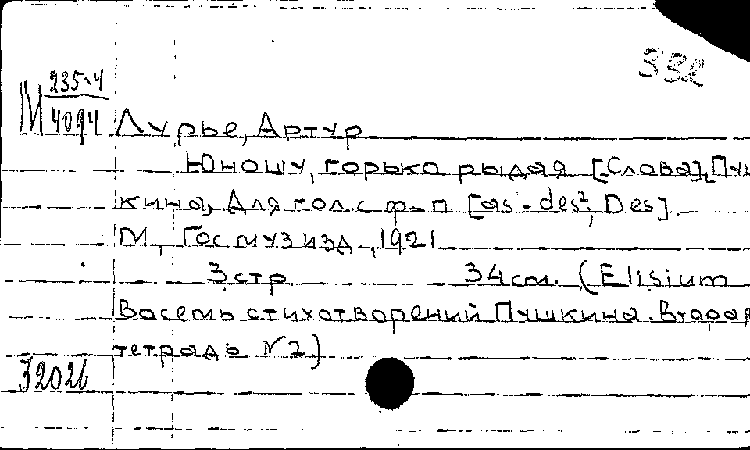 332
М 235-4
4094
Лурье, Артур
Юношу, горько рыдая [Слова] Пуш
кина, Для гол. с ф-п [as - des², Des].
М., Госмузизд., 1921
3 стр 34 см. (Elisium
Восемь стихотворений Пушкина. Вторая
тетрадь N 2)
32026